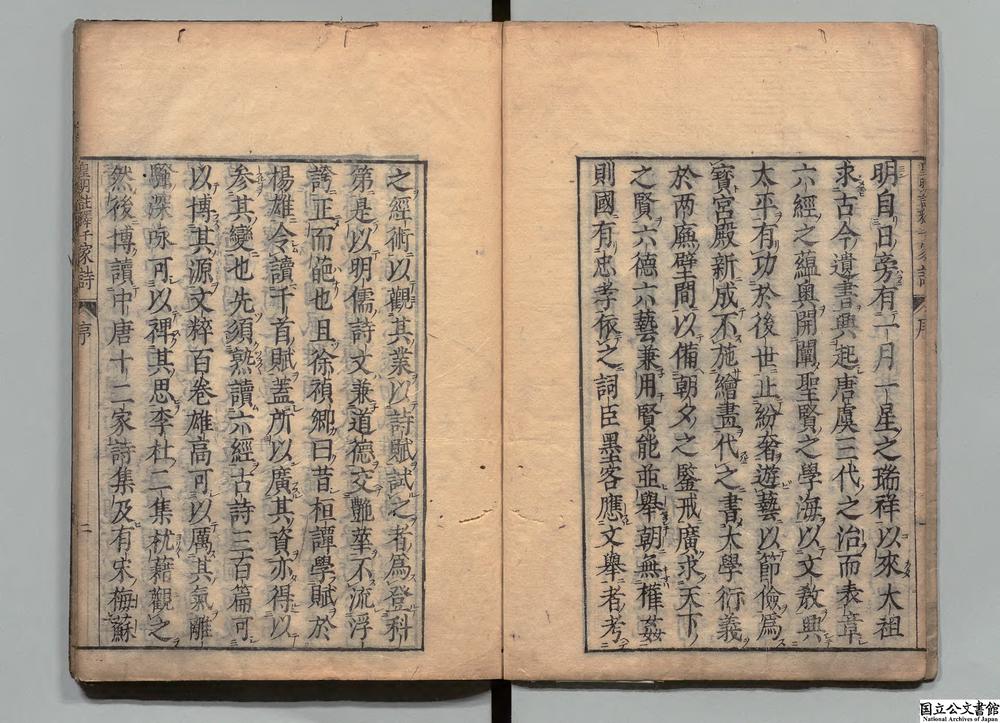 明自日旁有一月一星之瑞祥以來大祖
求古今遺書興起唐虞三代之治而表章
六經之蘊奥開闡聖賢之學海以文教興
太平有功於後世止紛奢遊藝以節儉爲
寳宮殿新成不施繪畫代之書大學衍義
於两廡壁間以備朝夕之鑒戒廣求天下
之賢六德六藝兼用賢能並舉朝無權姦
則國有忠孝依之詞臣墨客應文舉者考
之經術以觀其業以詩賦試之者爲登科
第是以明儒詩文兼道德文艷華不流浮
誇正而葩也且徐禎卿曰昔桓譚學賦於
楊雄令讀千首賦蓋所以廣其資亦得以
参其變也先須熟讀六經古詩三百篇可
以博其源文粹百卷雄高可以厲其氣離
騷深咏可以裨其思李杜二集枕藉觀之
然後博讀中唐十二家詩集及有宋梅蘇
皇明註釋千家詩
序
二
国立公文書館
National Archives of Japan